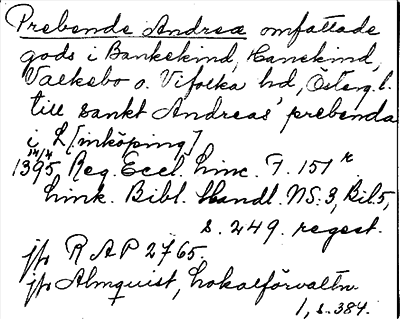 Prebende Andreæ omfattade
gods i Bankekind, Hanekind,
Valkebo o. Vifolka hd, Österg. l.
till sankt Andreas' prebenda
i L[inköping]
14/4
1395 Reg. Eccl. Linc. F. 151 r
Link. Bibl. Handl. NS. 3, Bil. 5,
s. 249. regest.
jfr RAP 2765.
jfr Almquist, Lokalförvaltn.
1, s. 384.